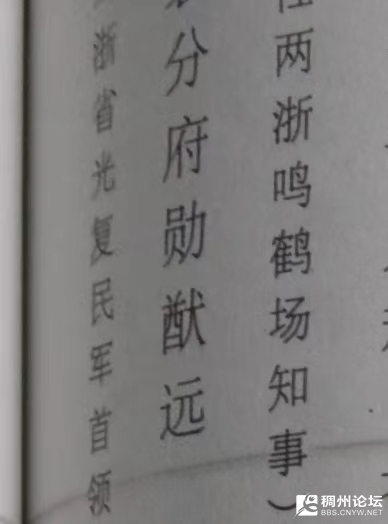 两浙鸣鹤场知事）
分府勋猷远
浙省光复民军首领
稠州论坛
BBS.CNYW.NET